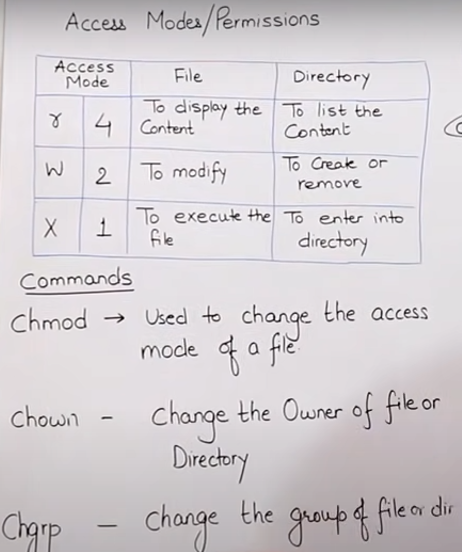 Access Modes/Permissions
Access Mode File Directory
r 4 To display the Content To list the Content
W 2 To modify To Create or remove
X 1 To execute the file To enter into directory
Commands
Chmod → Used to change the access
mode of a file.
Chown - Change the Owner of file or
Directory
Chgrp - Change the group of file or dir